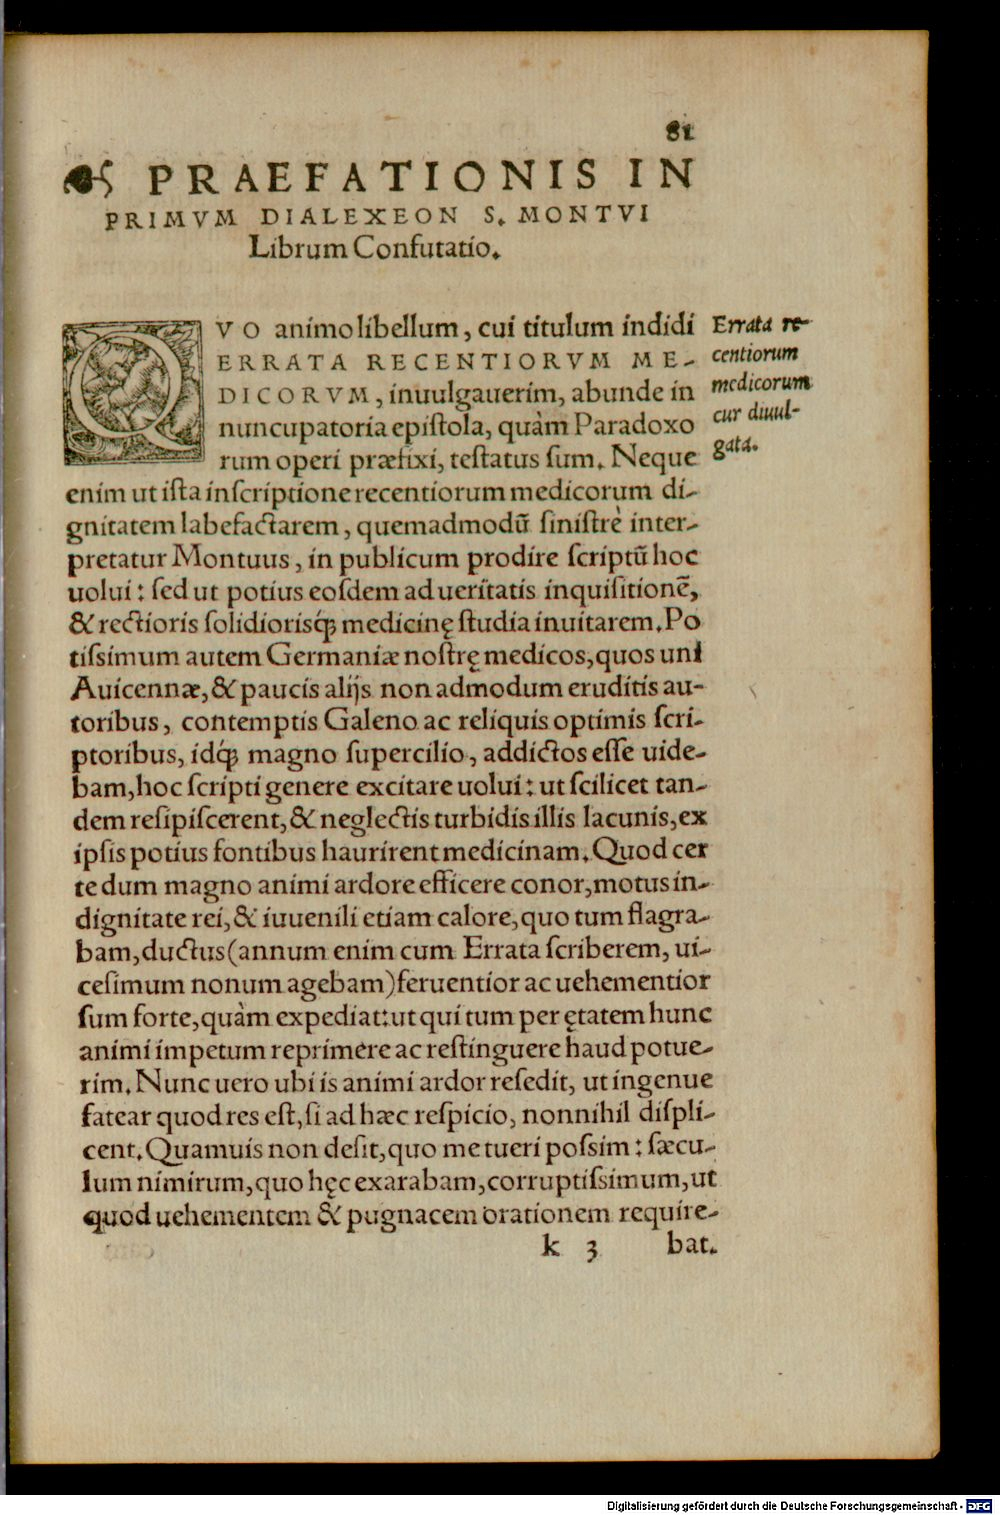 81
PRAEFATIONIS IN
PRIMVM DIALEXEON S. MONTVI
Librum Confutatio.
QVO animo libellum, cui titulum indidi
ERRATA RECENTIORVM ME-
DICORVM, inuulgauerim, abunde in
nuncupatoria epiſtola, quàm Paradoxo
rum operi præfixi, teſtatus ſum. Neque
enim ut iſta inſcriptione recentiorum medicorum di-
gnitatem labefactarem, quemadmodū ſiniſtrè inter-
pretatur Montuus, in publicum prodire ſcriptū hoc
uolui: ſed ut potius eoſdem ad ueritatis inquiſitionē,
& rectioris ſolidiorisq́; medicinę ſtudia inuitarem. Po
tiſsimum autem Germaniæ noſtrę medicos, quos uni
Auicennæ, & paucis alijs non admodum eruditis au-
toribus, contemptis Galeno ac reliquis optimis ſcri-
ptoribus, idq́; magno ſupercilio, addictos eſſe uide-
bam, hoc ſcripti genere excitare uolui: ut ſcilicet tan-
dem reſipiſcerent, & neglectis turbidis illis lacunis, ex
ipſis potius fontibus haurirent medicinam. Quod cer
te dum magno animi ardore efficere conor, motus in-
dignitate rei, & iuuenili etiam calore, quo tum flagra-
bam, ductus (annum enim cum Errata ſcriberem, ui-
ceſimum nonum agebam) feruentior ac uehementior
ſum forte, quàm expediat: ut qui tum per ętatem hunc
animi impetum reprimere ac reſtinguere haud potue-
rim. Nunc uero ubi is animi ardor reſedit, ut ingenue
fatear quod res eſt, ſi ad hæc reſpicio, nonnihil diſpli-
cent. Quamuis non deſit, quo me tueri poſsim: ſæcu-
lum nimirum, quo hęc exarabam, corruptiſsimum, ut
quod uehementem & pugnacem orationem require-
k 3 bat.
Errata re-
centiorum
medicorum
cur diuul-
gata.
Digitalisierung gefördert durch die Deutsche Forschungsgemeinschaft - DFG